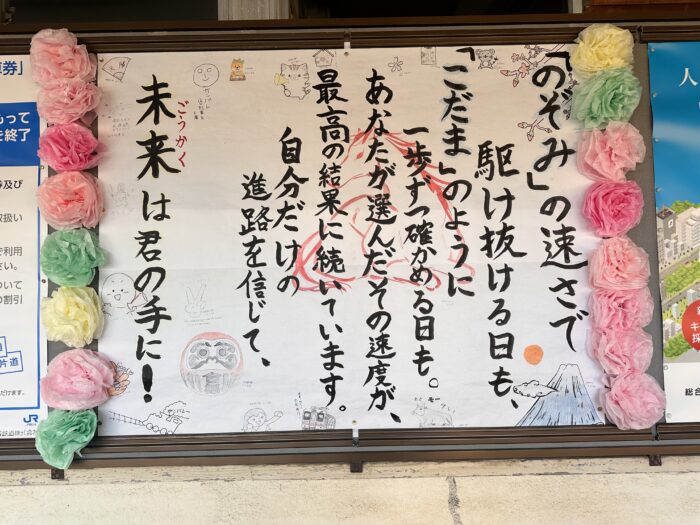 「のぞみ」の速さで
駆け抜ける日も、
「こだま」のように
一歩ずつ確かめる日も。
あなたが選んだその速度が、
最高の結果に続いています。
自分だけの
進路を信じて、
未来は君の手に!
ごうかく
券」
もって
を終了
券及び
取扱い
で利用
さい。
ついて
の割引
片道
JR
人
総合